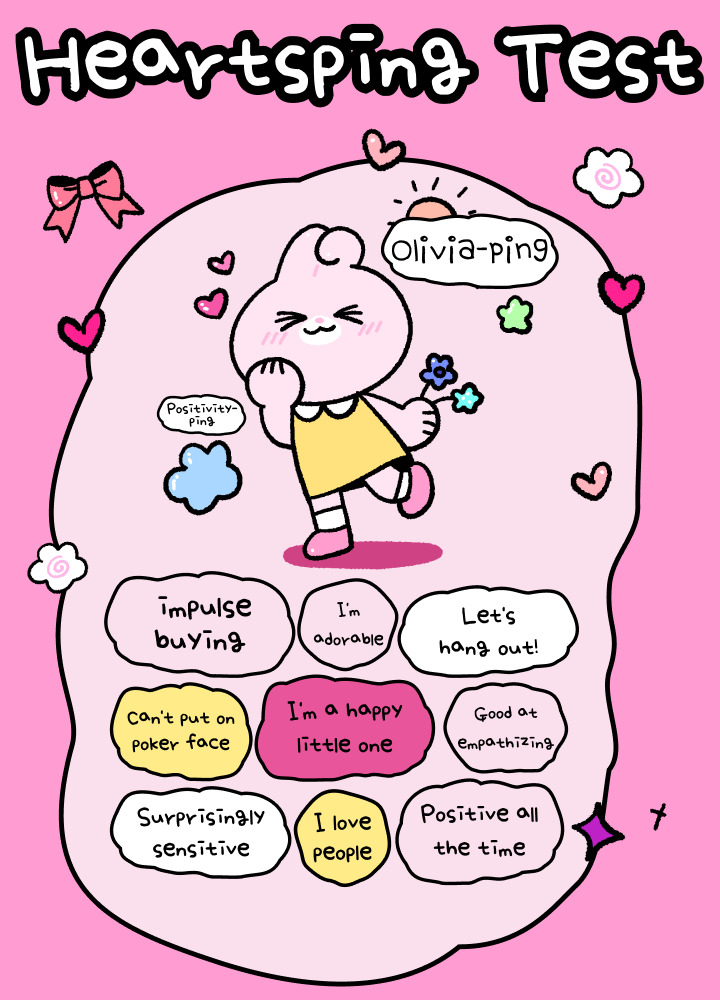 Heartsping Test
Olivia-ping
Positivity-
ping
impulse
buying
I'm
adorable
Let's
hang out!
Can't put on
poker face
I'm a happy
little one
Good at
empathizing
Surprisingly
sensitive
I love
people
Positive all
the time